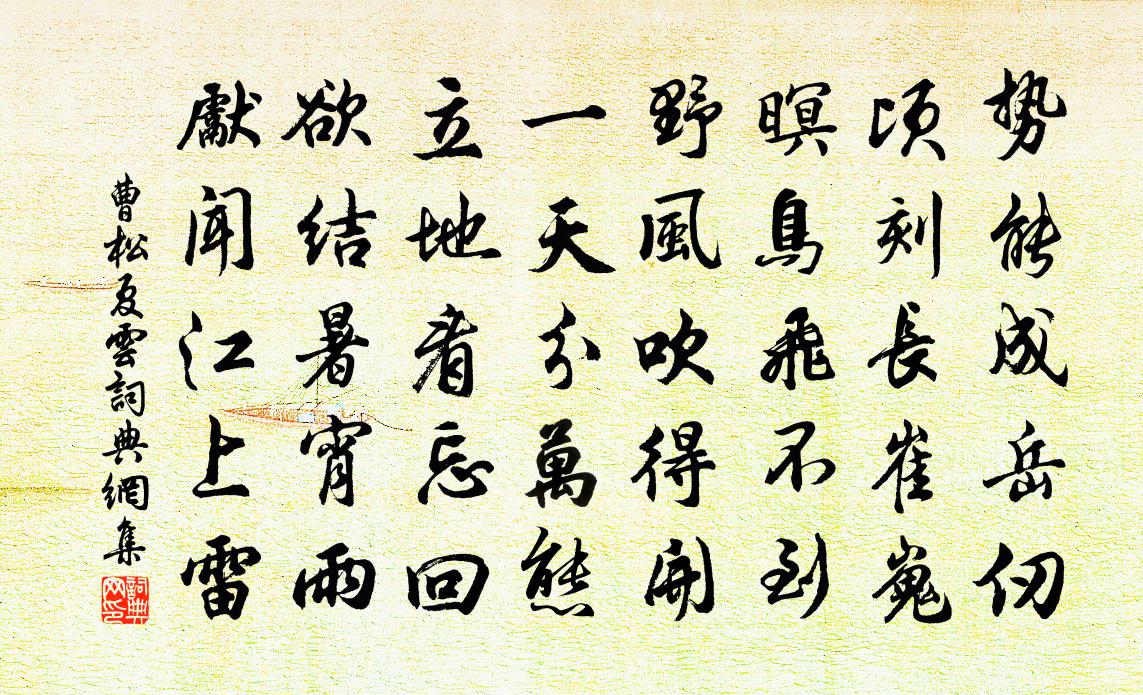 势能成岳仞
頃刻長崔嵬
暝鳥飛不到
野風吹得開
一天分萬態
立地看忘回
欲結暑宵雨
獻聞江上雷
曹松夏雲詞典網集
詞典网印